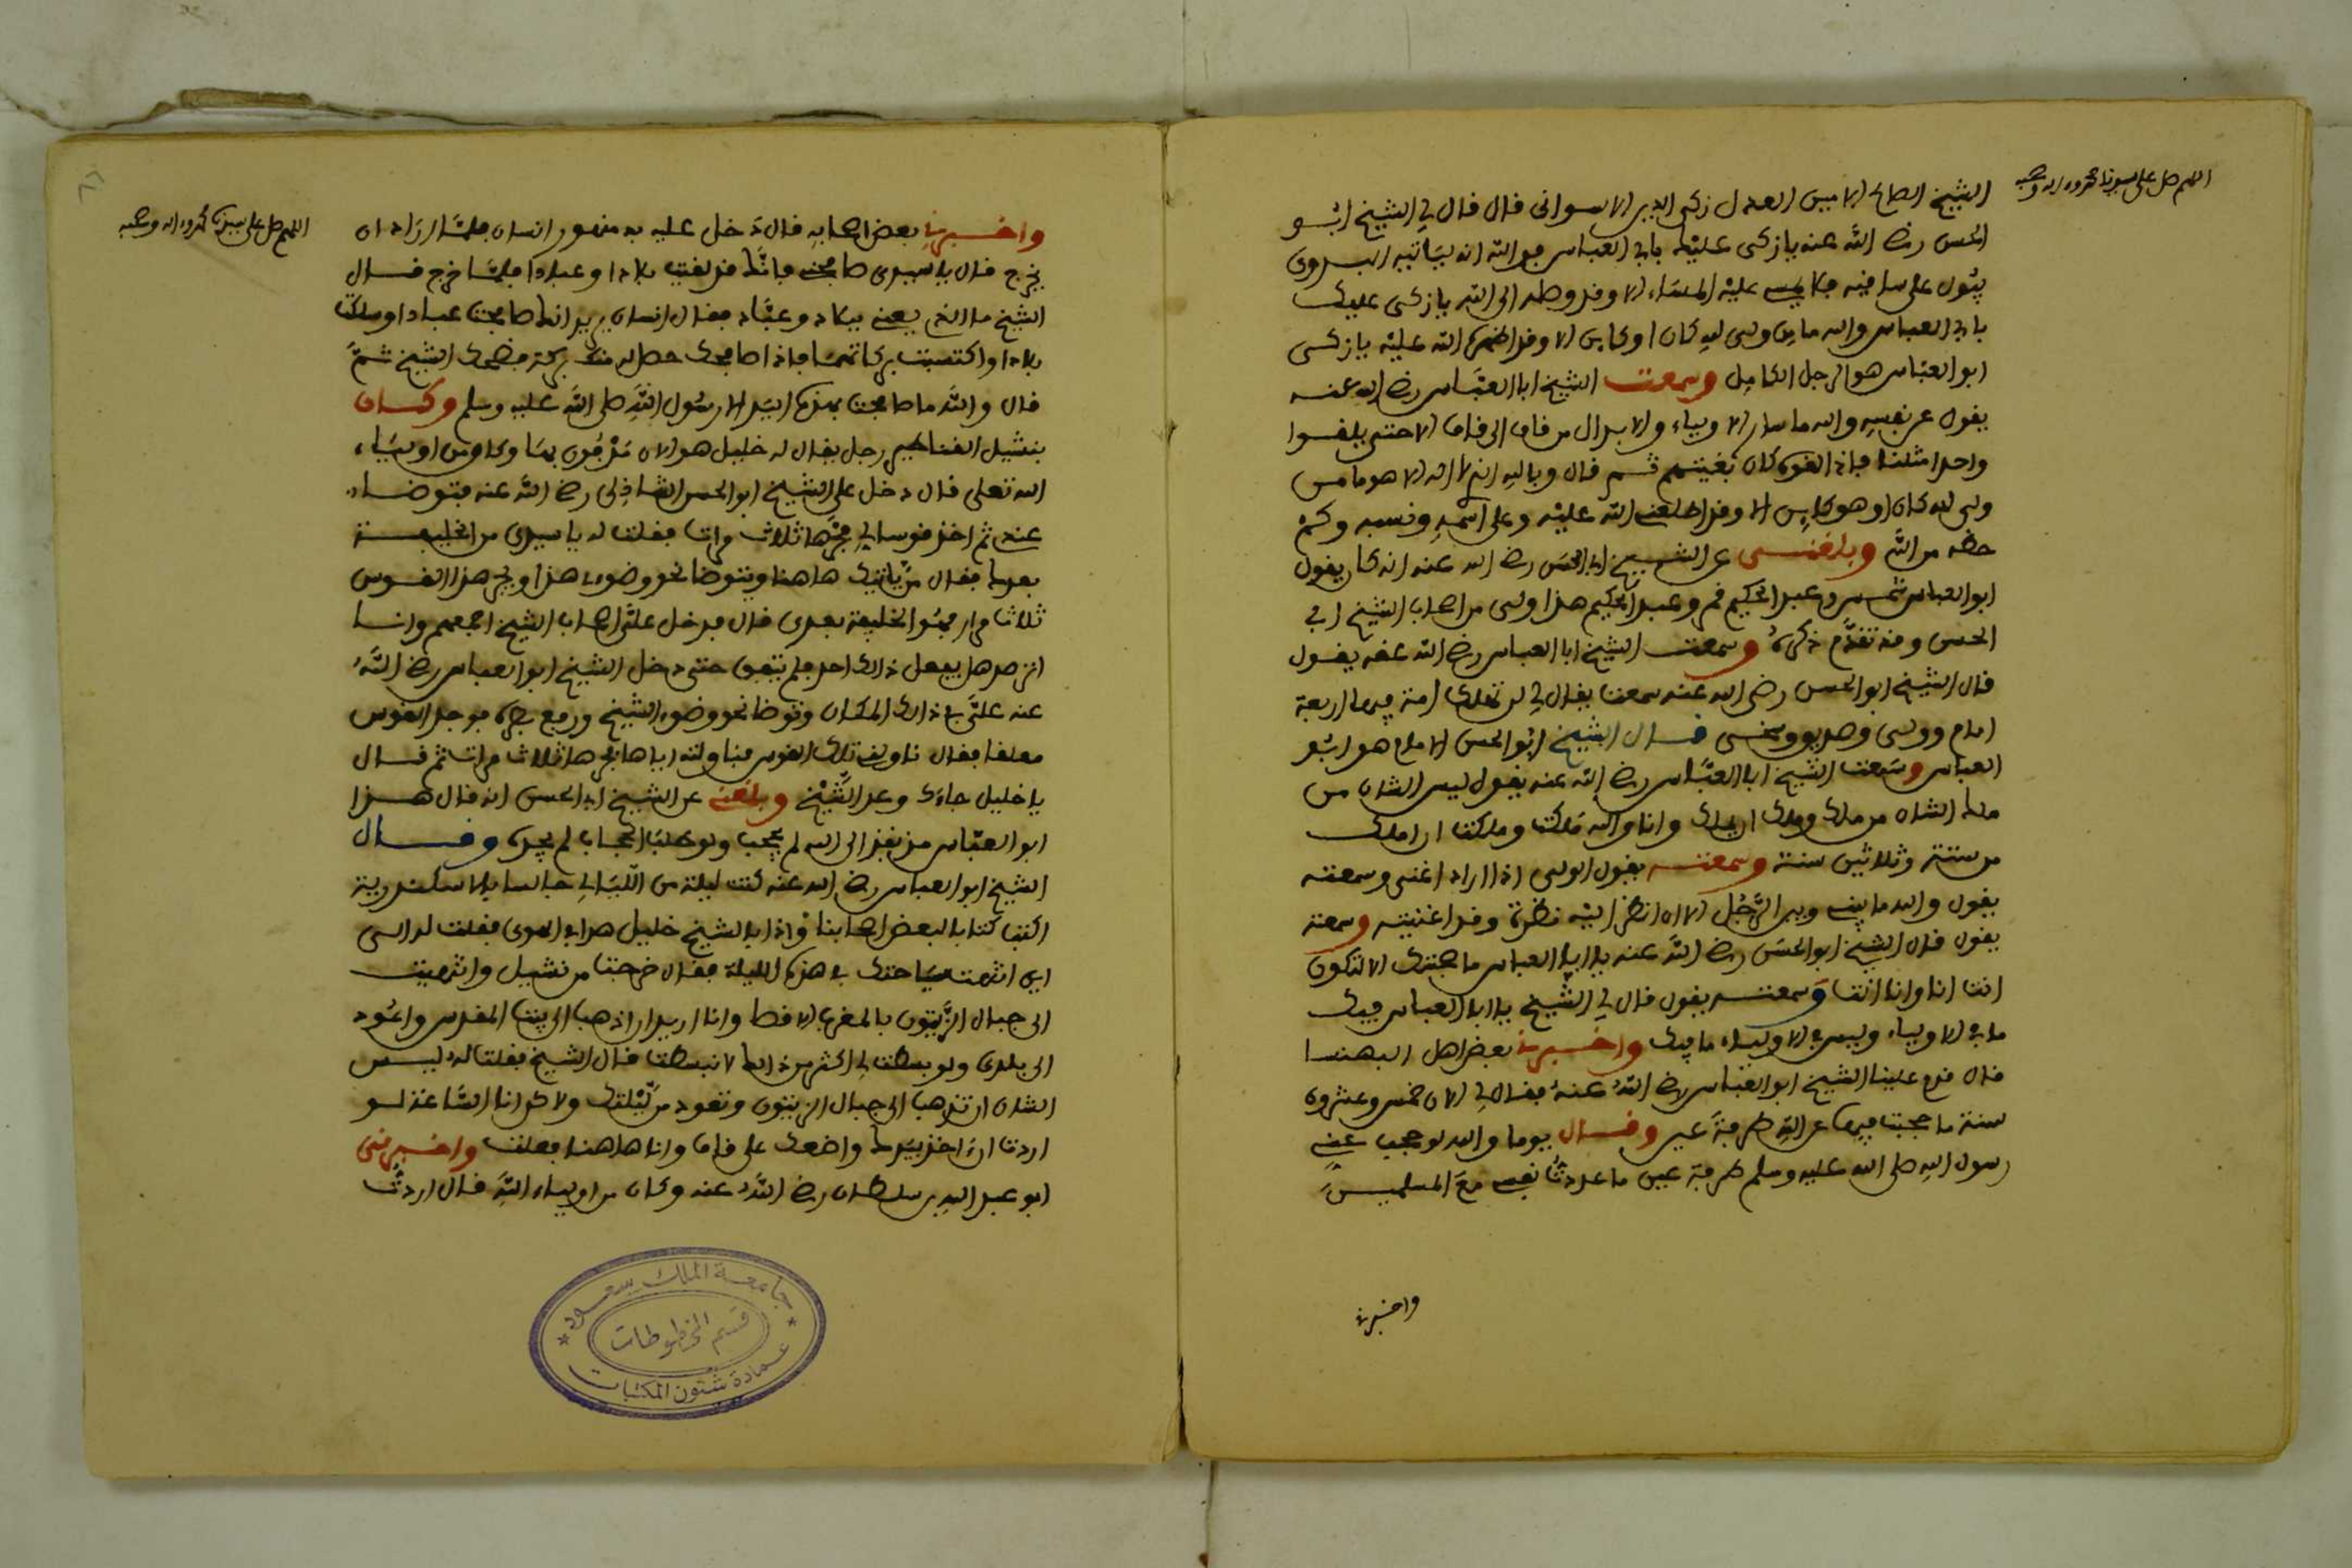 اللهم صل على سيدنا محمد وءاله وصحبه
الشيخ الصالح الامين العدل زكي الدين الاسواني قال قال لي الشيخ ابـو
الحسن رضي الله عنه يا زكي عليك بابي العباس فو الله انه لياتيه البدوي
يبول على ساقيه فلا يمسي عليه المساء الا وقد وصله الى الله يا زكي عليك
بابي العباس والله ما من ولي لله كان او كاين الا وقد اظهره الله عليه يا زكي
ابو العباس هو الرجل الكامل وسمعت الشيخ ابا العباس رضي الله عنه
يقول عن نفسه والله ما سار الاولياء والابدال من قاف الى قاف الا حتى يلقوا
واحدا مثلنا فاذا لقوه كان بغيتهم ثم قال وبالله الذي لا اله الا هو ما من
ولي لله كان او هو كاين الا وقد اطلعني الله عليه وعلى اسمه ونسبه وكم
حظه من الله وبلغني عن الشيخ ابي الحسن رضي الله عنه انه كان يقول
ابو العباس شمس وعبد الحكيم قمر وعبد الحكيم هذا ولي من اصحاب الشيخ ابي
الحسن وقد تقدم ذكره وسمعت الشيخ ابا العباس رضي الله عنه يقول
قال الشيخ ابو الحسن رضي الله عنه سمعت يقال لي لن تهلك امة فيها اربعة
امام وولي وصديق وسخي قال الشيخ ابو الحسن الامام هو ابو
العباس وسمعت الشيخ ابا العباس رضي الله عنه يقول ليس الشان من
ملك الشان من ملك وملك ان يملك وانا والله ملكت وملكت ان املك
من ستة وثلاثين سنة وسمعته يقول الولي اذا اراد اغنى وسمعته
يقول والله ما بيني وبين الرجل الا ان انظر اليه نظرة وقد اغنيته وسمعته
يقول قال الشيخ ابو الحسن رضي الله عنه يا ابا العباس ما صحبتك الا لتكون
انت انا وانا انت وسمعته يقول قال لي الشيخ يا ابا العباس فيك
ما في الاولياء وليس في الاولياء ما فيك واخبرني بعض اهل البهنسا
قال قدم علينا الشيخ ابو العباس رضي الله عنه فقال لي الان خمس وعشرون
سنة ما حجبت فيها عن الله طرفة عين وقال يوما والله لو حجب عني
رسول الله صلى الله عليه وسلم طرفة عين ما عددت نفسي مع المسلمين
واخبرني
اللهم صل على سيدنا محمد وءاله وصحبه
واخبرني بعض اصحابه قال دخل عليه بدمنهور انسان فلما اراد ان
يخرج قال يا سيدي صافحني فانك قد لقيت بلادا وعبادا فلما خرج قال
الشيخ ما الذي يعني ببلاد وعباد فقال انسان يريد انك صافحت عبادا وسلكت
بلادا واكتسبت بركاتها فاذا صافحك حصل له منك بركة فضحك الشيخ ثم
قال والله ما صافحت بهذه اليد الا رسول الله صلى الله عليه وسلم وكان
بنشيل القناطير رجل يقال له خليل هو الان مدفون بها وكان من اولياء
الله تعلى قال دخل علي الشيخ ابو الحسن الشاذلي رضي الله عنه فتوضا
عندي ثم اخذ قوسا لي فجرها ثلاث مرات فقلت له يا سيدي من الخليفة
بعدك فقال من ياتيك هاهنا ويتوضا نحو وضوءي هذا ويجر هذا القوس
ثلاث مرار فهو الخليفة بعدي قال فدخل علي اصحاب الشيخ اجمعهم وانا
ارصد هل يفعل ذالك احد فلم يتفق حتى دخل الشيخ ابو العباس رضي الله
عنه علي في ذالك المكان وتوضا نحو وضوء الشيخ ورفع بصره فوجد القوس
معلقا فقال ناولني تلك القوس فناولته اياها فجرها ثلاث مرات ثم قال
يا خليل جاءك وعد الشيخ وبلغني عن الشيخ ابي الحسن انه قال هذا
ابو العباس منذ نفذ الى الله لم يحجب ولو طلب الحجاب لم يجده وقال
الشيخ ابو العباس رضي الله عنه كنت ليلة من الليالي جالسا بالاسكندرية
اكتب كتابا لبعض اصحابنا واذا بالشيخ خليل هذا في الهوى فقلت له الى
اين انتهت سياحتك في هذه الليلة فقال خرجت من نشيل وانتهيت
الى جبال الزيتون بالمغرب الاقصا وانا اريد ان اذهب الى بيت المقدس واعود
الى بلدي ولو بسطت لي اكثر من ذالك لانبسطت قال الشيخ فقلت له ليس
الشان ان تذهب الى جبال الزيتون وتعود من ليلتك ولاكن انا الساعة لو
اردت ان اخذ بيدك واضعك على قاف وانا هاهنا فعلت واخبرني
ابو عبد الله بن سلطان رضي الله عنه وكان من اولياء الله قال اردت
جامعة الملك سعود
قسم المخطوطات
عمادة شئون المكتبات